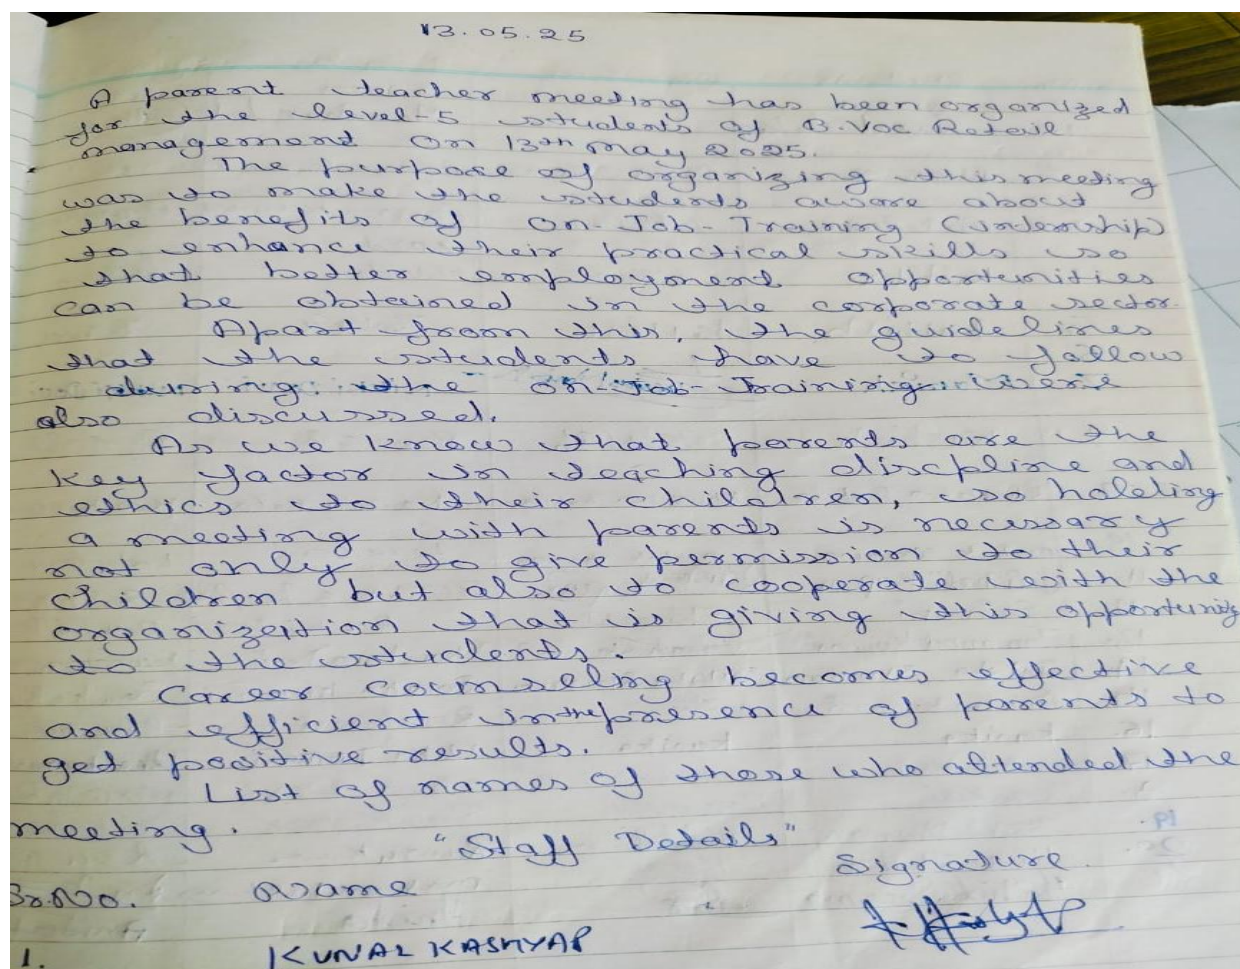 13.05.25
A parent teacher meeting has been organized
for the level-5 students of B.Voc Retail
management on 13th may 2025.
The purpose of organizing this meeting
was to make the students aware about
the benefits of on-Job-Training (internship)
to enhance their practical skills so
that better employment opportunities
can be obtained in the corporate sector.
Apart from this, the guidelines
that the students have to follow
during the on-Job-Training were
also discussed.
As we know that parents are the
key factor in teaching discipline and
ethics to their children, so holding
a meeting with parents is necessary
not only to give permission to their
children but also to cooperate with the
organization that is giving this opportunity
to the students.
Career counseling becomes effective
and efficient in the presence of parents to
get positive results.
List of names of those who attended the
meeting.
"Staff Details"
Sr.No. Name Signature
1. KUNAL KASHYAP